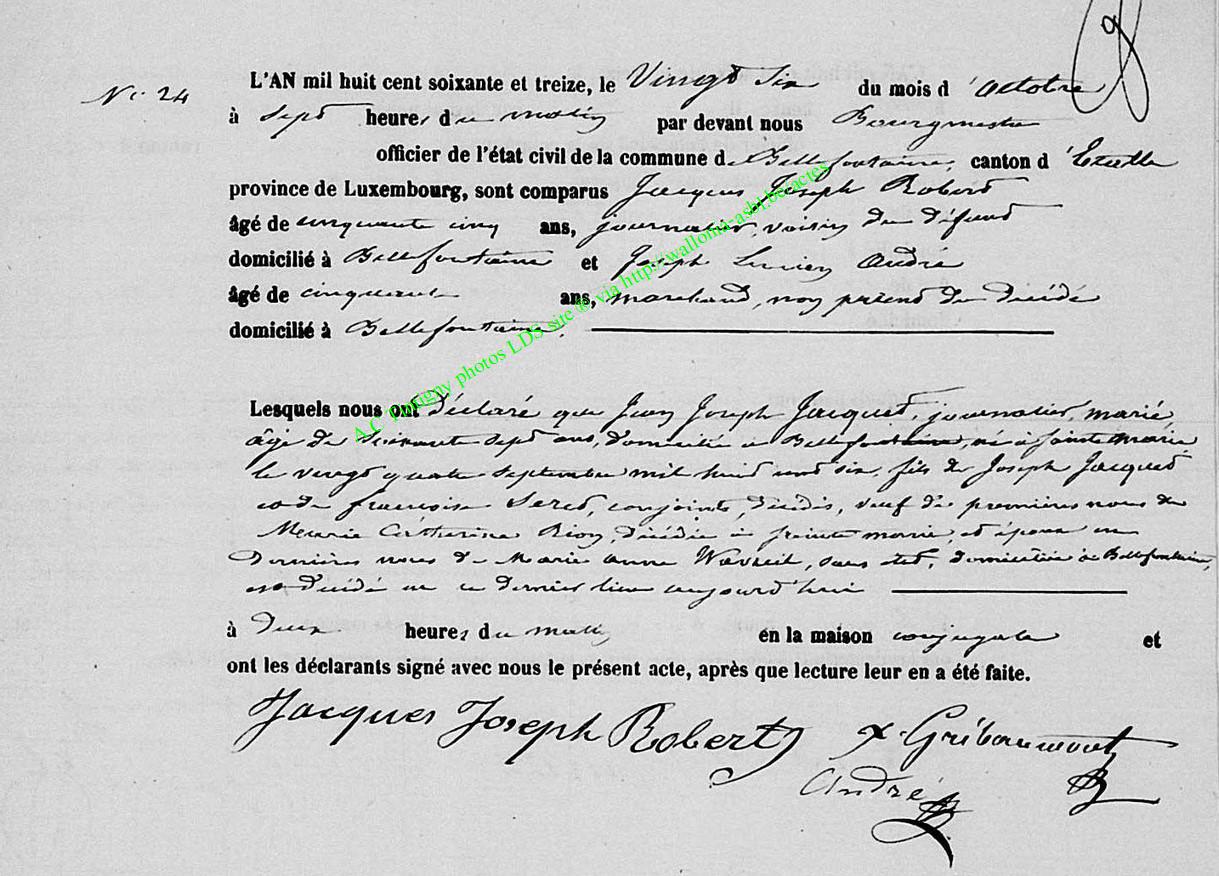 9
L'AN mil huit cent soixante et treize, le Vingt Six du mois d'octobre
No. 24
à Sept heures du matin par devant nous Bourgmestre
officier de l'état civil de la commune de Bellefontaine, canton d'Etalle
province de Luxembourg, sont comparus Jacques Joseph Robert
âgé de cinquante cinq ans, journalier, voisin du défunt
domicilié à Bellefontaine et Joseph Lucien André
âgé de cinquante ans, marchand, non parent du décédé
domicilié à Bellefontaine.
A.C Tintigny photos LDS site ® via http://wallonia-asbl.be/actes
Lesquels nous ont déclaré que Jean Joseph Jacquet, journalier, marié
âgé de soixante sept ans, domicilié à Bellefontaine, né à Sainte marie
le vingt quatre Septembre mil huit cent six, fils de Joseph Jacquet
et de françoise, conjoints, décédés, veuf de premières noces de
Marie Catherine, décédée à Sainte marie, et époux en
dernières noces de Marie anne, sans état, domiciliée à Bellefontaine,
est décédé en ce dernier lieu aujourd'hui
à deux heures du matin en la maison conjugale et
ont les déclarants signé avec nous le présent acte, après que lecture leur en a été faite.
Jacques Joseph Robert
Gribaumont
André